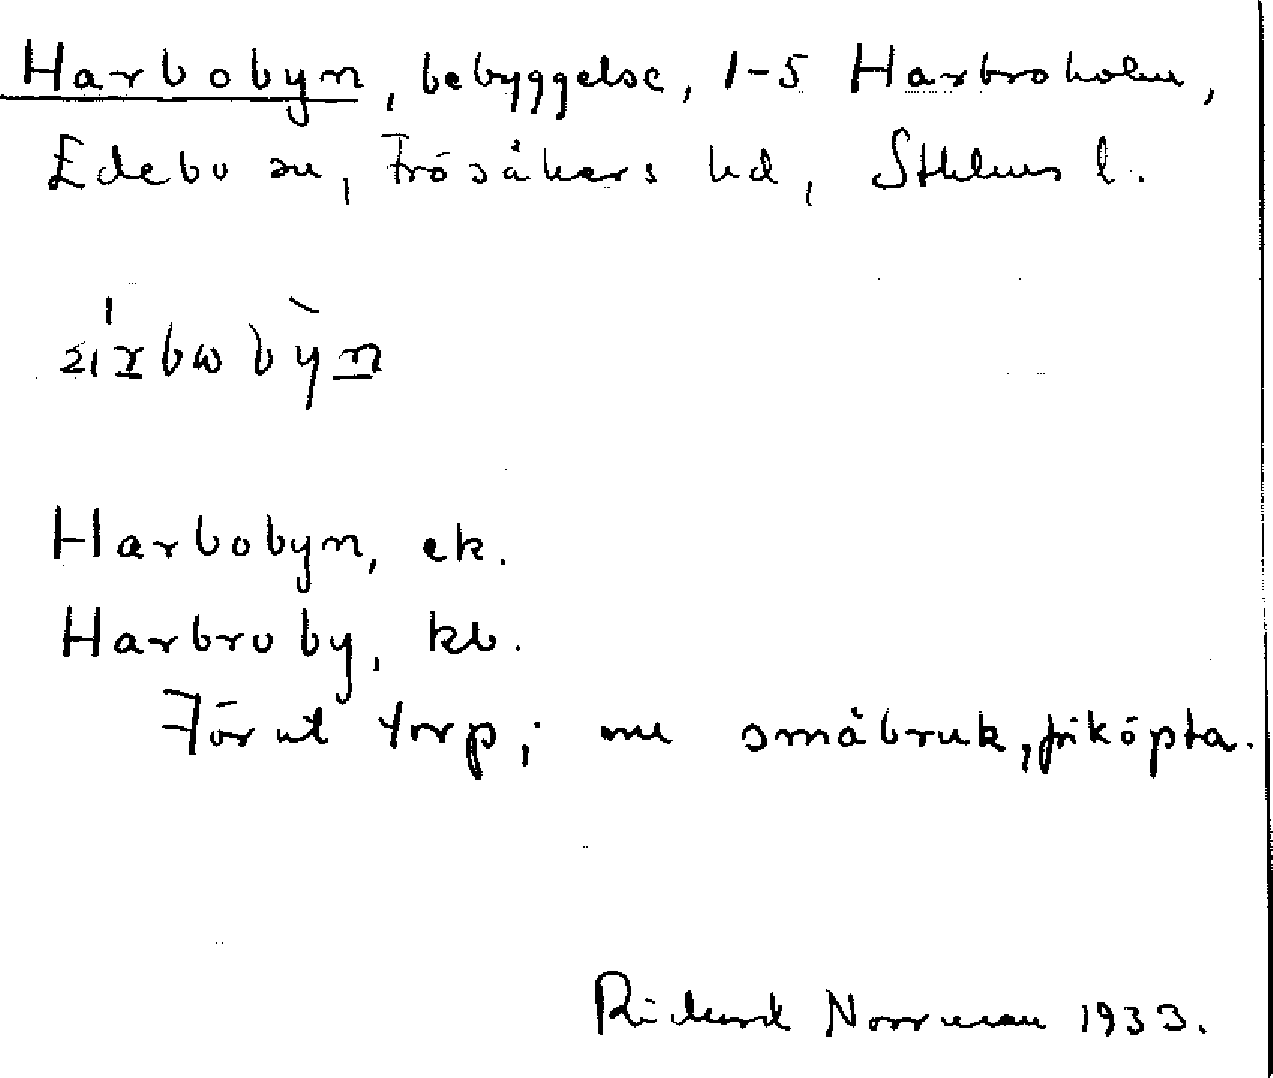 Harbobyn, bebyggelse, 1-5 Harbroholm,
Edebo sn, Frösåkers hd, Sthlms l.
Harbobyn, ek.
Harbroby, kb.
Förut torp; nu småbruk, friköpta.
Rickard Norrman 1933.